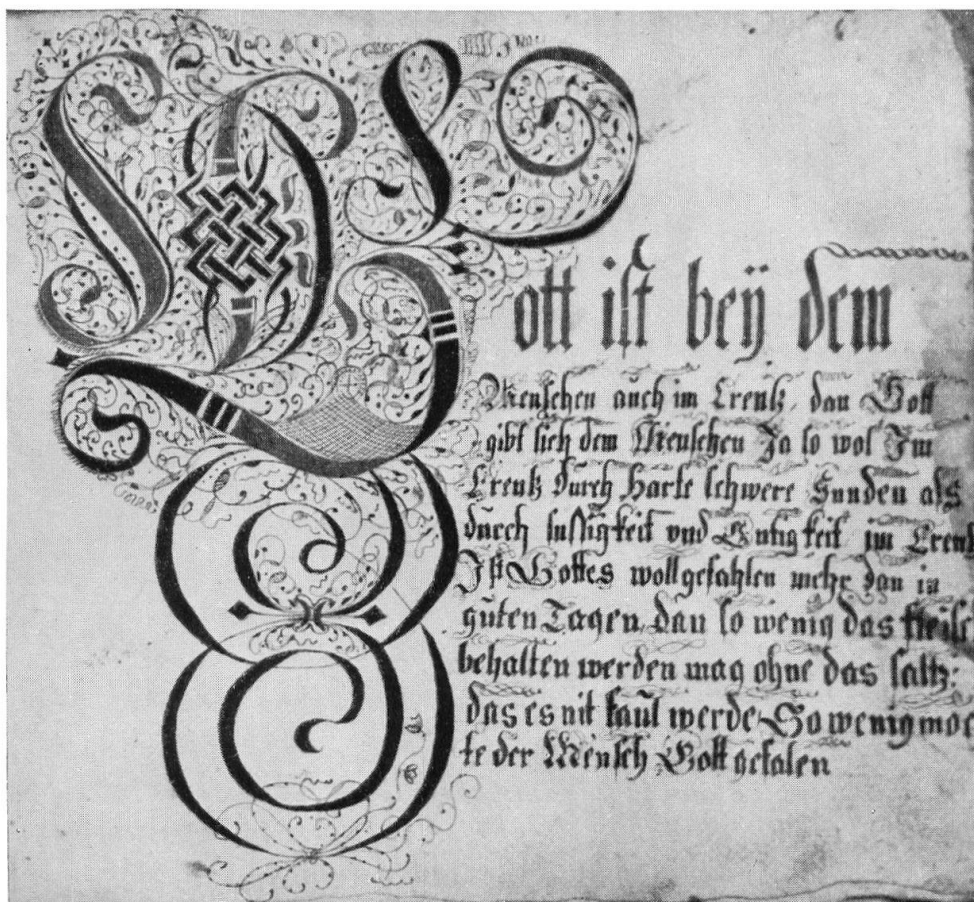 Gott ist beÿ dem
Menschen auch im Creutz, dan Gott
gibt sich dem Menschen Ja so wol Im
Creutz durch Harte schwere Sunden als
durch sussigkeit vnd Gutigkeit im Creutz
Ist Gottes wollgefahlen mehr dan in
guten Tagen dan so wenig das fleisch
behalten werden mag ohne das saltz:
das es nit faul werde, So wenig moc
te der Mensch Gott gefalen